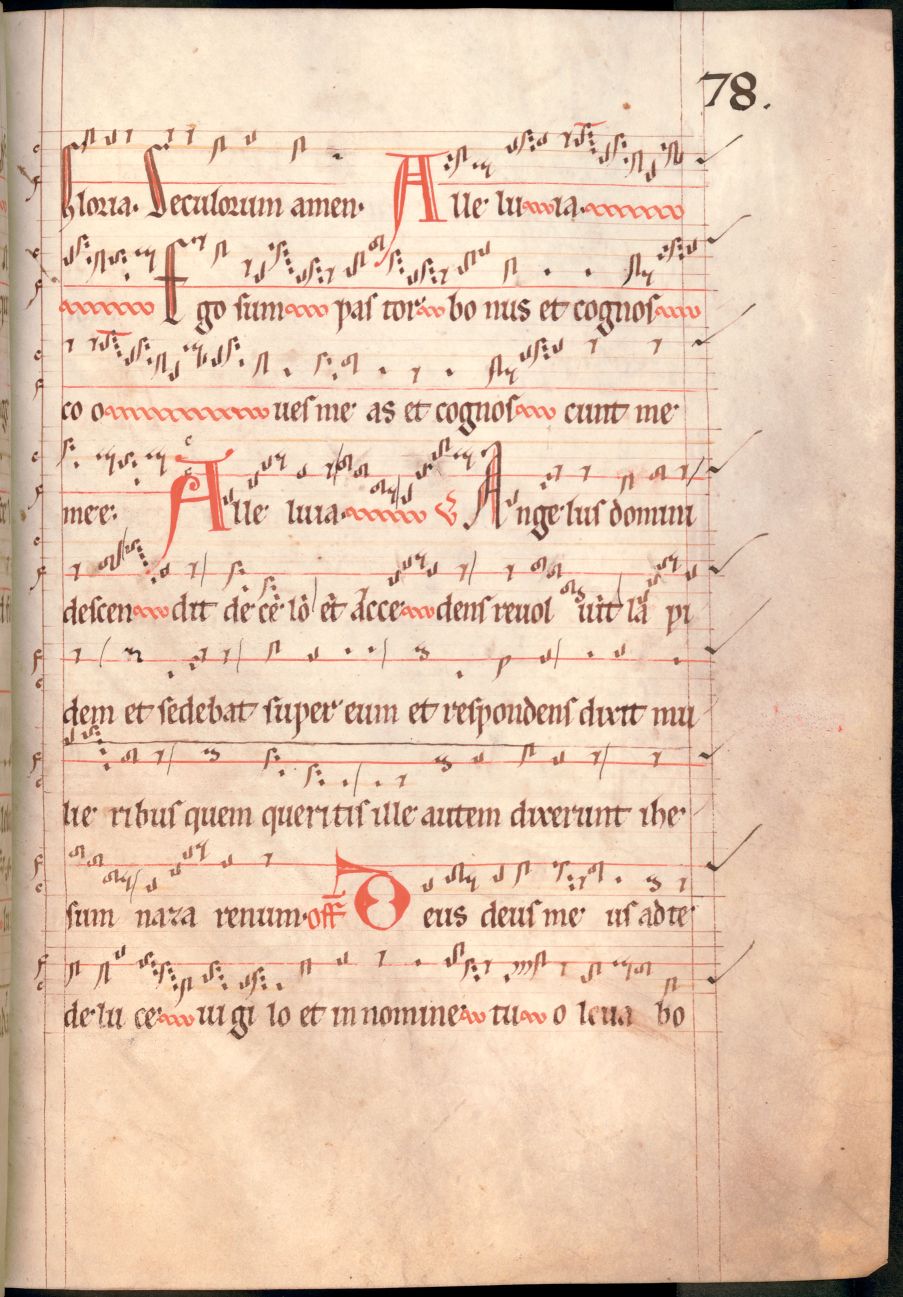 78.
Gloria. Seculorum amen. Alle luia
Ego sum pas tor bo nus et cognos
co o ues me as et cognos cunt me
me e. Alle luia. Angelus domini
descen dit de ce lo et acce dens reuol uit la pi
dem et sedebat super eum et respondens dixit mu
lie ribus quem queritis ille autem dixerunt ihe
sum naza renum. off Deus deus me us ad te
de lu ce ui gi lo et in nomine tu o leua bo